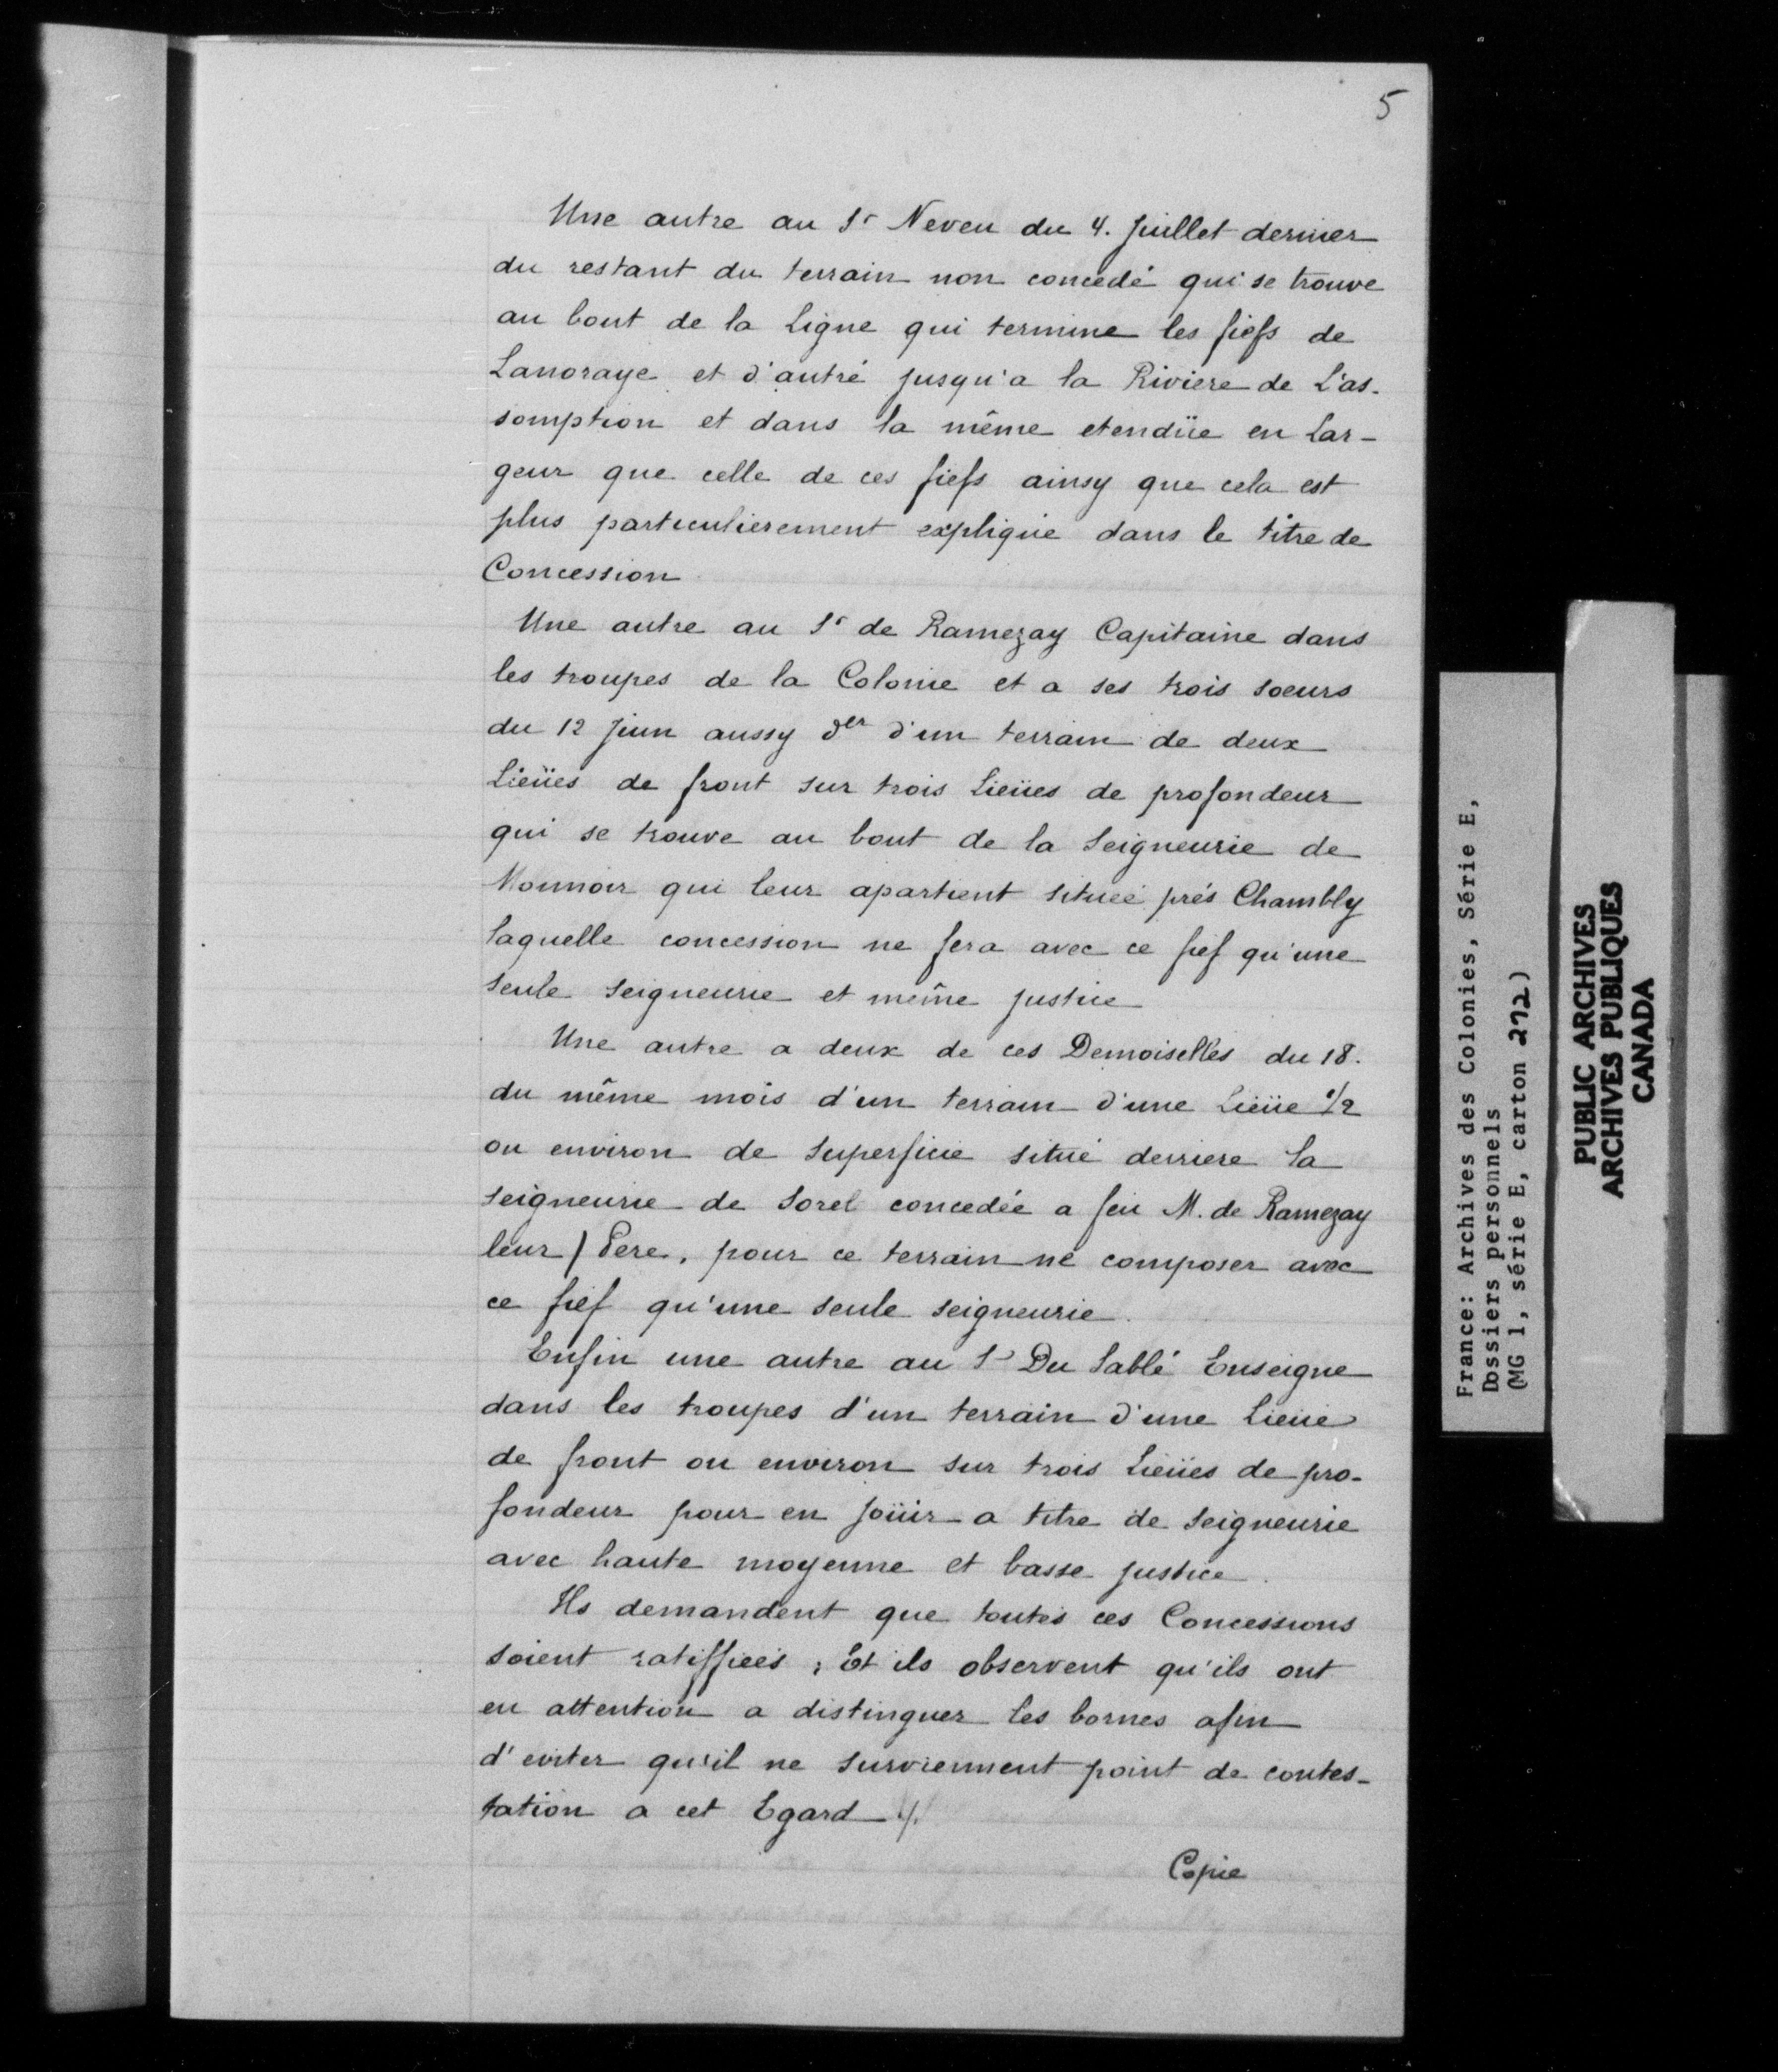 5
Une autre au Sr Neveu du 4. Juillet dernier
du restant du terrain non concedé qui se trouve
au bout de la Ligne qui termine les fiefs de
Lanoraye et d'autré jusqu'a la Riviere de L'as-
somption et dans la même etendüe en Lar-
geur que celle de ces fiefs ainsy que cela est
plus particulierement expliqué dans le titre de
Concession
Une autre au Sr de Ramezay Capitaine dans
les troupes de la Colonie et a ses trois soeurs
du 12 Juin aussy der d'un terrain de deux
Lieües de front sur trois Lieües de profondeur
qui se trouve au bout de la Seigneurie de
Monnoir qui leur apartient située prés Chambly
laquelle concession ne fera avec ce fief qu'une
seule Seigneurie et même justice
Une autre a deux de ces Demoiselles du 18.
du même mois d'un terrain d'une Lieüe 1/2
ou environ de Superficie situé derriere la
Seigneurie de Sorel concedée a feu M. de Ramezay
leur / Pere, pour ce terrain ne composer avec
ce fief qu'une seule seigneurie.
Enfin une autre au Sr Du Sablé Enseigne
dans les troupes d'un terrain d'une Lieüe
de front ou environ sur trois Lieües de pro-
fondeur pour en joüir a titre de Seigneurie
avec haute moyenne et basse justice.
Ils demandent que toutes ces Concessions
soient ratiffiées ; Et ils observent qu'ils ont
eu attention a distinguer les bornes afin
d'eviter qu'il ne surviennent point de contes-
tation a cet Egard ./.
Copie
France: Archives des Colonies, Série E,
Dossiers personnels
(MG 1, série E, carton 272)
PUBLIC ARCHIVES
ARCHIVES PUBLIQUES
CANADA